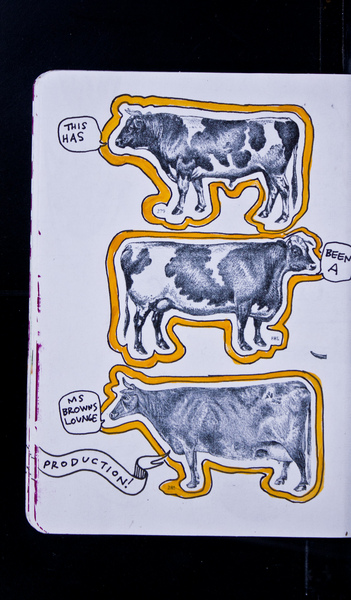 THIS
HAS
BEEN
A
MS
BROWNS
LOUNGE
PRODUCTION!